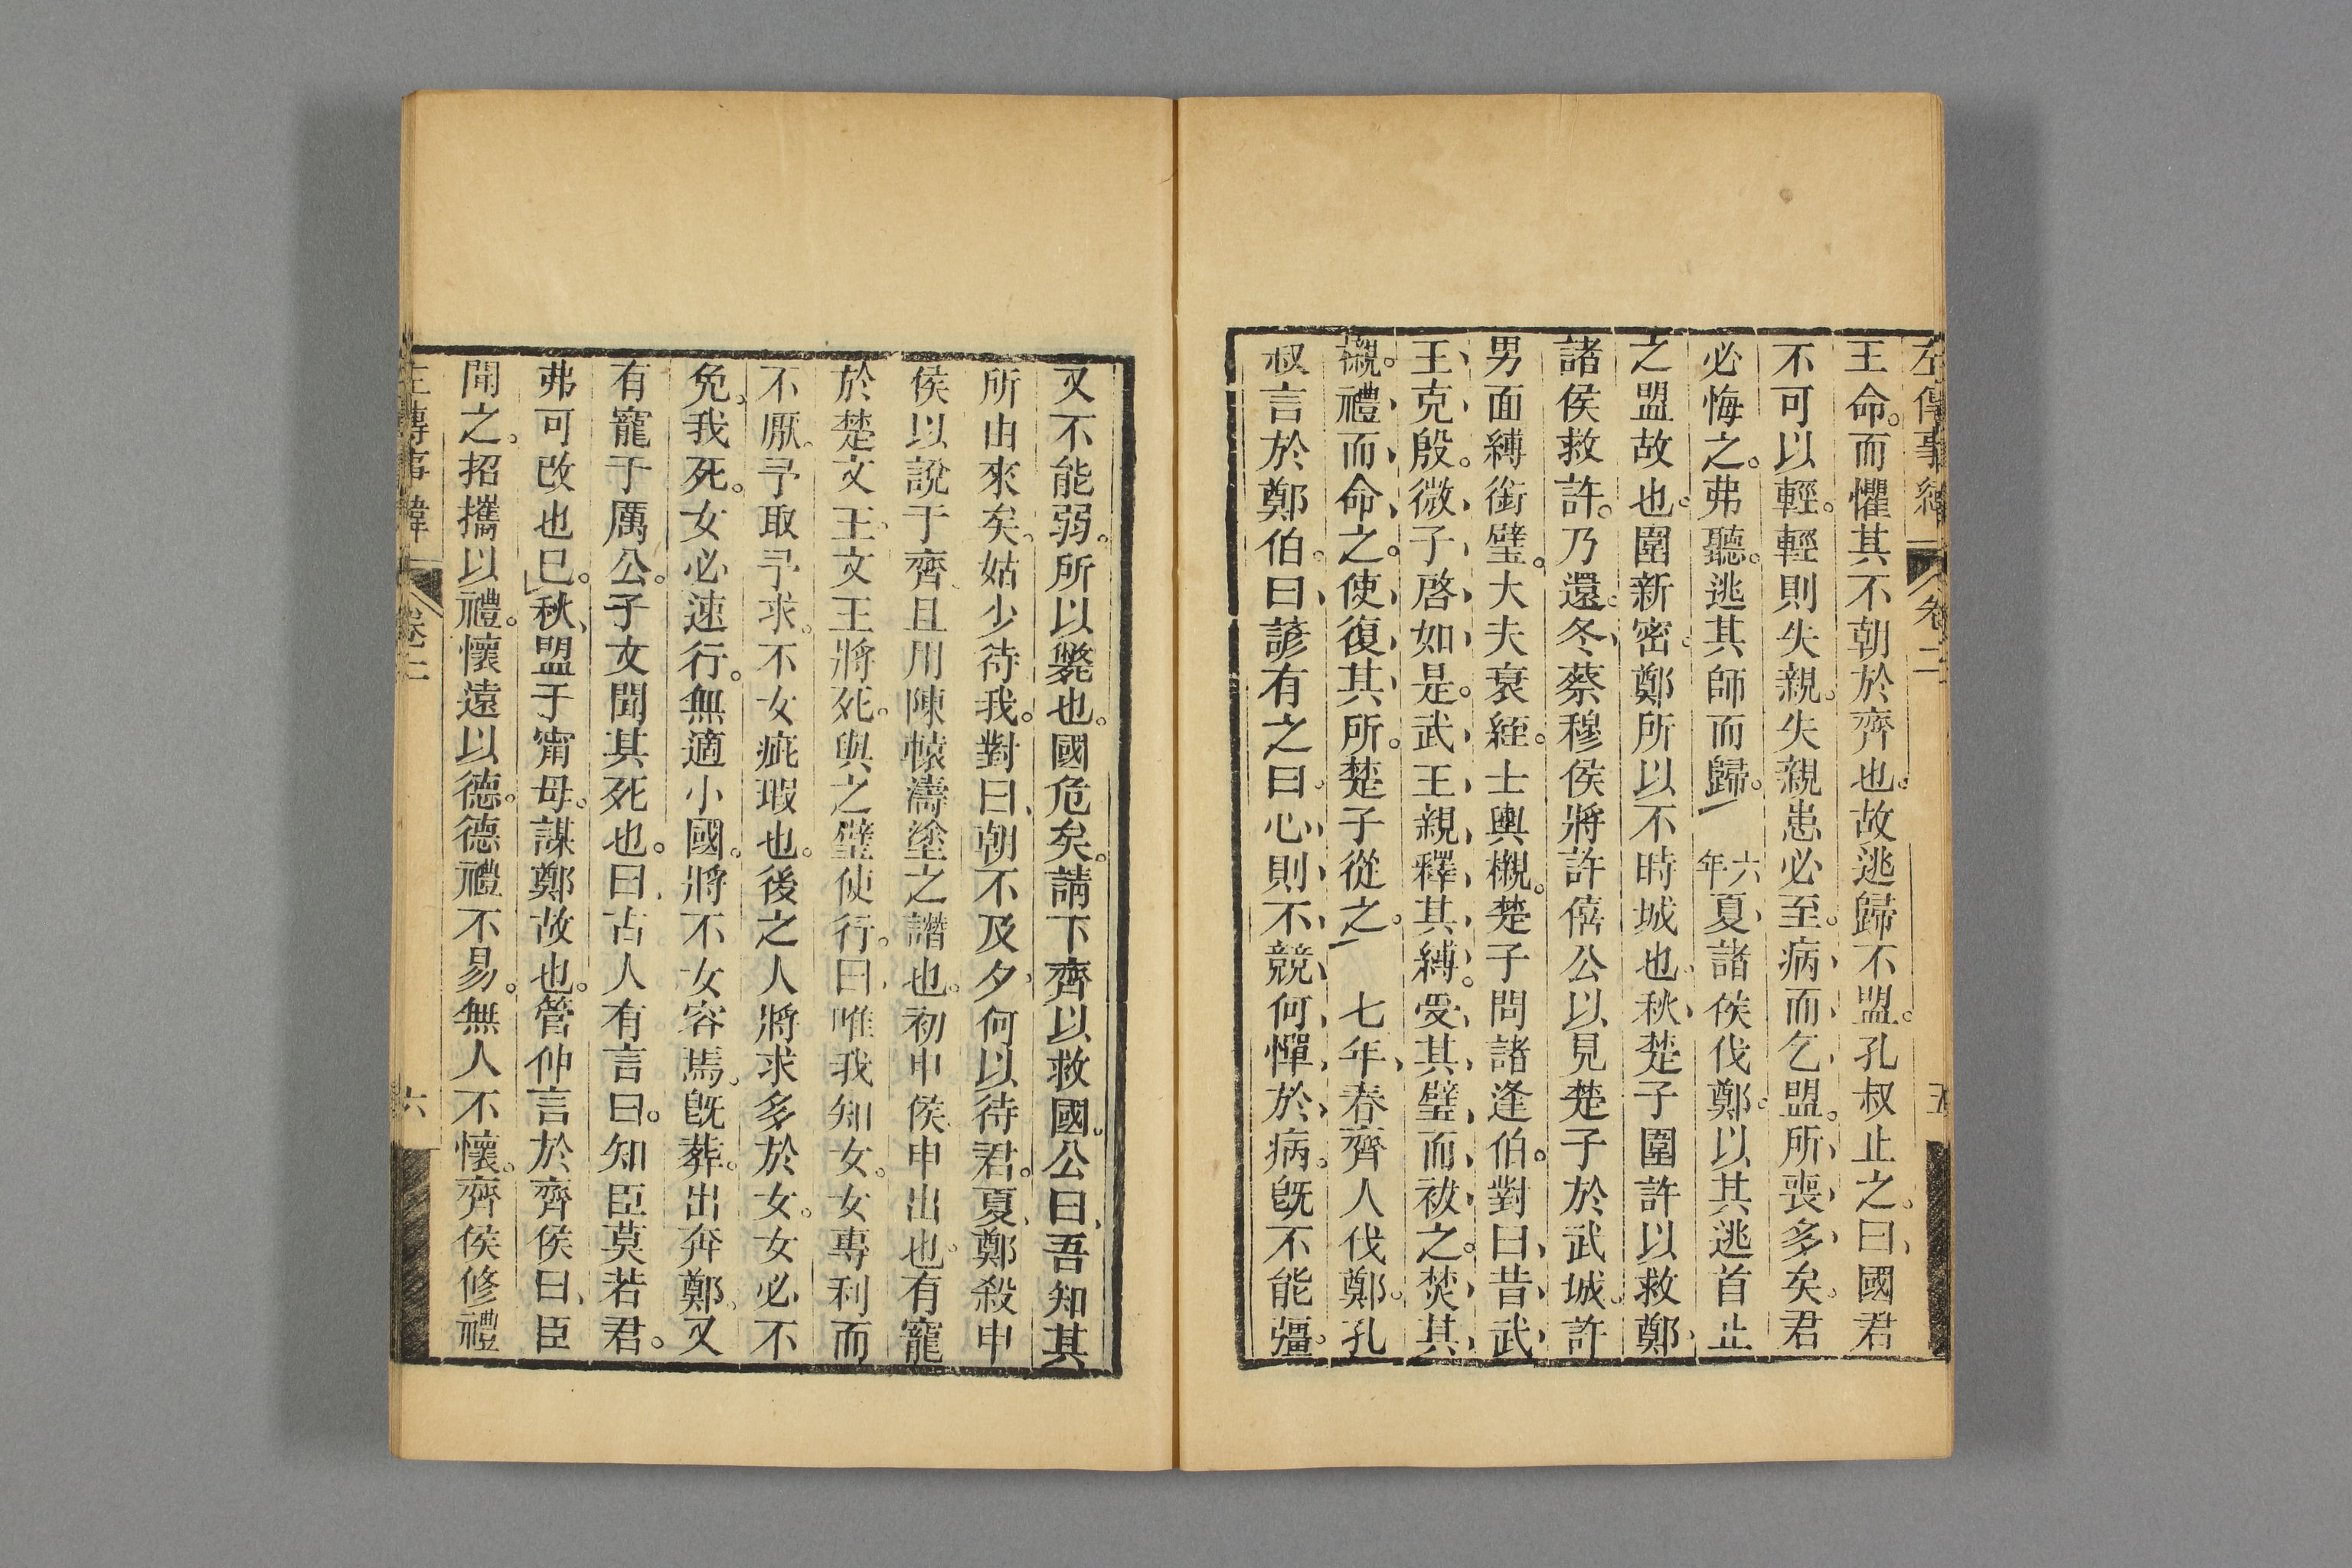 左傳事緯 卷二 五
王命。而懼其不朝於齊也。故逃歸不盟。孔叔止之。曰、國君
不可以輕。輕則失親。失親患必至。病而乞盟。所喪多矣。君
必悔之。弗聽。逃其師而歸。六年夏、諸侯伐鄭。以其逃首止
之盟故也。圍新密。鄭所以不時城也、秋、楚子圍許以救鄭、
諸侯救許。乃還。冬、蔡穆侯將許僖公以見楚子於武城。許
男面縛銜璧。大夫衰絰。士輿櫬。楚子問諸逢伯。對曰、昔武
王克殷。微子啓如是。武王親釋其縛。受其璧而祓之。焚其
櫬。禮而命之。使復其所。楚子從之。七年、春齊人伐鄭。孔
叔言於鄭伯。曰、諺有之曰。心則不競、何憚於病。旣不能彊。
又不能弱。所以斃也。國危矣。請下齊以救國。公曰、吾知其
所由來矣。姑少待我。對曰、朝不及夕、何以待君。夏、鄭殺申
侯以說于齊、且用陳轅濤塗之譖也。初申侯、申出也。有寵
於楚文王、文王將死。與之璧使行。曰、唯我知女。女專利而
不厭。予取予求。不女疵瑕也。後之人將求多於女。女必不
免。我死。女必速行。無適小國。將不女容焉。旣葬。出奔鄭。又
有寵于厲公。子文聞其死也。曰、古人有言曰。知臣莫若君。
弗可改也已。秋、盟于甯母。謀鄭故也。管仲言於齊侯曰、臣
聞之。招攜以禮。懷遠以德。德禮不易。無人不懷。齊侯修禮
左傳事緯 卷二 六